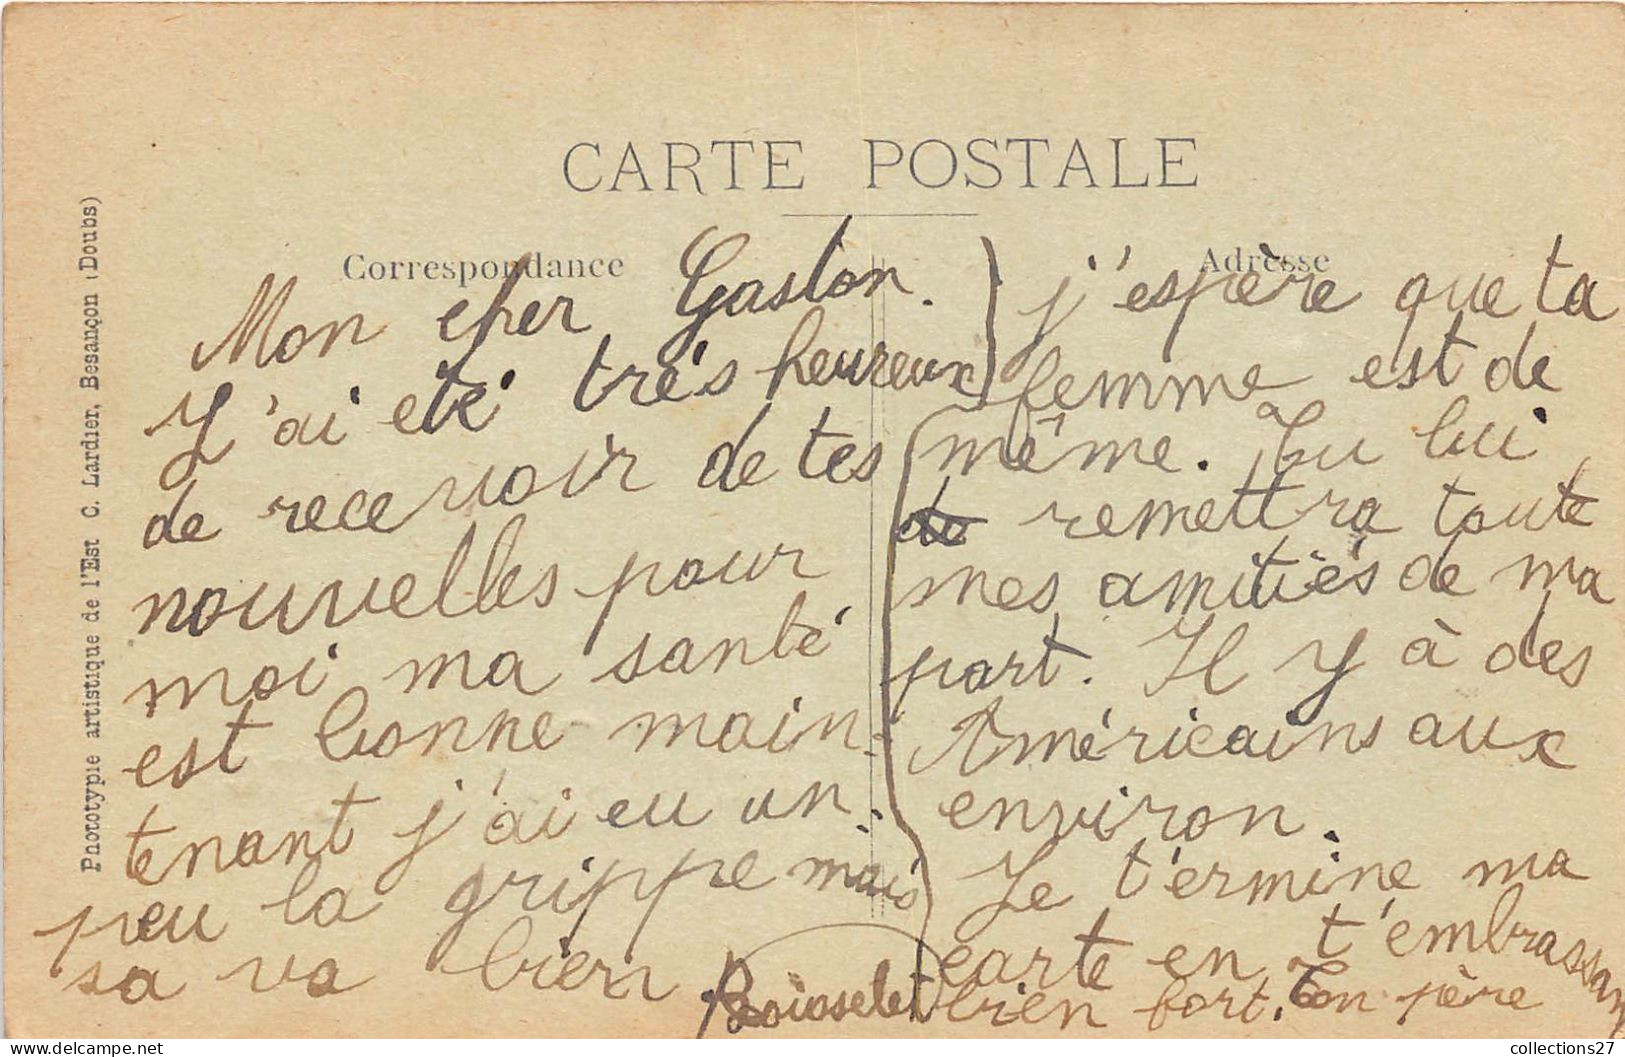 CARTE POSTALE
Correspondance
Adresse
Phototypie artistique de l'Est C. Lardier, Besançon (Doubs)
Mon cher Gaston.
J'ai eté trés heureux
de recevoir de tes
nouvelles pour
moi ma santé
est bonne main-
tenant j'ai eu un
peu la grippe mais
sa va bien
j'espère que ta
femme est de
même. Tu lui
remettra toute
mes amitiés de ma
part. Il y à des
Américains aux
environ.
Je t'ermine ma
carte en t'embrassan
bien fort. Ton père
Boisselet
collections27